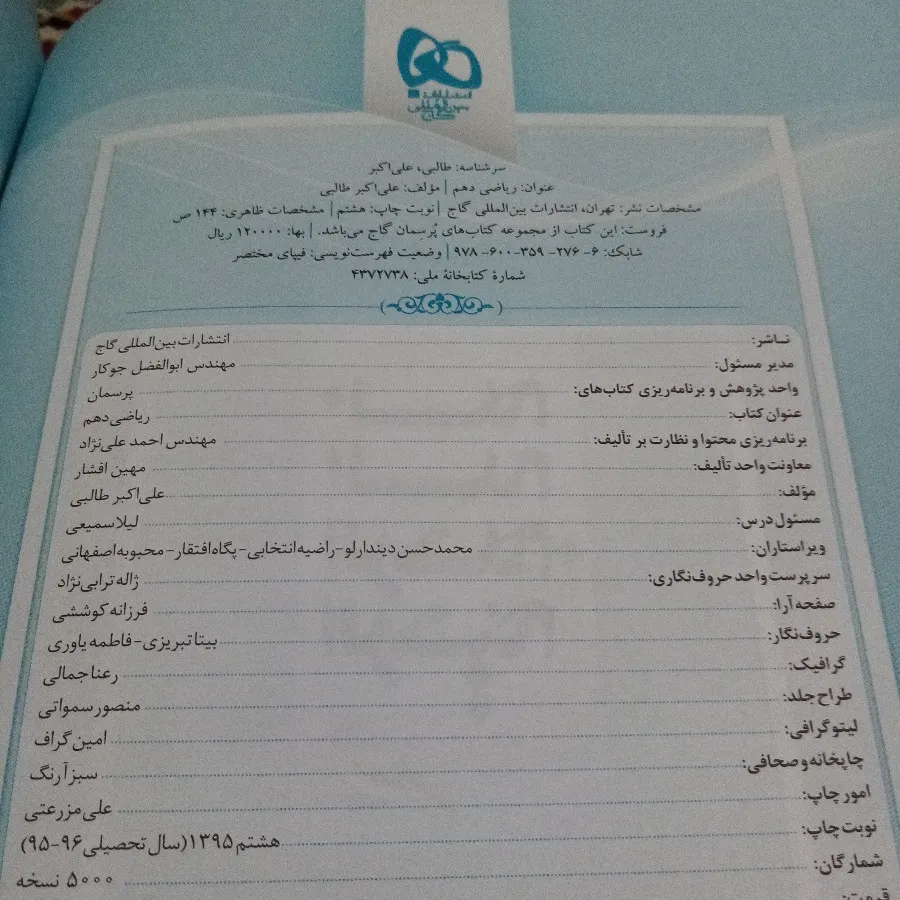 گاج
انتشارات
بین‌المللی
گاج
سرشناسه: طالبی، علی‌اکبر
عنوان: ریاضی دهم | مؤلف: علی‌اکبر طالبی
مشخصات نشر: تهران، انتشارات بین‌المللی گاج | نوبت چاپ: هشتم | مشخصات ظاهری: ۱۴۴ ص
فروست: این کتاب از مجموعه کتاب‌های پُرسِمان گاج می‌باشد. | بها: ۱۲۰۰۰۰ ریال
شابک: ۶- ۲۷۶- ۳۵۹-۶۰۰- ۹۷۸ | وضعیت فهرست‌نویسی: فیپای مختصر
شمارهٔ کتابخانهٔ ملی: ۴۳۷۲۷۳۸
ناشر: انتشارات بین‌المللی گاج
مدیر مسئول: مهندس ابوالفضل جوکار
واحد پژوهش و برنامه‌ریزی کتاب‌های: پرسمان
عنوان کتاب: ریاضی دهم
برنامه‌ریزی محتوا و نظارت بر تألیف: مهندس احمد علی‌نژاد
معاونت واحد تألیف: مهین افشار
مؤلف: علی‌اکبر طالبی
مسئول درس: لیلا سمیعی
ویراستاران: محمدحسن دیندارلو-راضیه انتخابی-پگاه افتقار-محبوبه اصفهانی
سرپرست واحد حروف‌نگاری: ژاله ترابی‌نژاد
صفحه‌آرا: فرزانه کوششی
حروف‌نگار: بیتا تبریزی-فاطمه یاوری
گرافیک: رعنا جمالی
طراح جلد: منصور سمواتی
لیتوگرافی: امین گراف
چاپخانه و صحافی: سبز آرنگ
امور چاپ: علی مزرعتی
نوبت چاپ: هشتم ۱۳۹۵ (سال تحصیلی ۹۶-۹۵)
شمارگان: ۵۰۰۰ نسخه
قیمت: